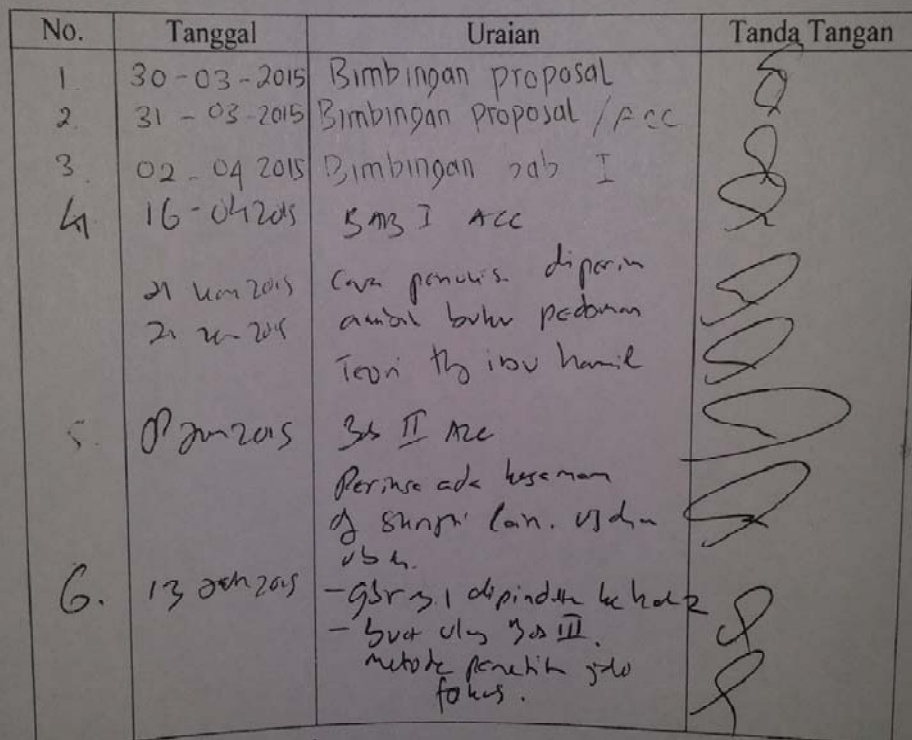 No. Tanggal Uraian Tanda Tangan
1. 30-03-2015 Bimbingan proposal
2. 31-03-2015 Bimbingan proposal / Acc
3. 02-04 2015 Bimbingan bab I
4. 16-04 2015 BAB I ACC
21 2015 Cara penulis. diperin
2015 ambil buku pedoman
Teori ttg ibu hamil
5. 08 Jun 2015 Bab II Acc
Periksa ada kesamaan
dg skripsi lain.
6. 13 2015 - gbr 3.1 dipindah ke hal 2
- buat ulang Bab III.
metode penelitian
fokus.